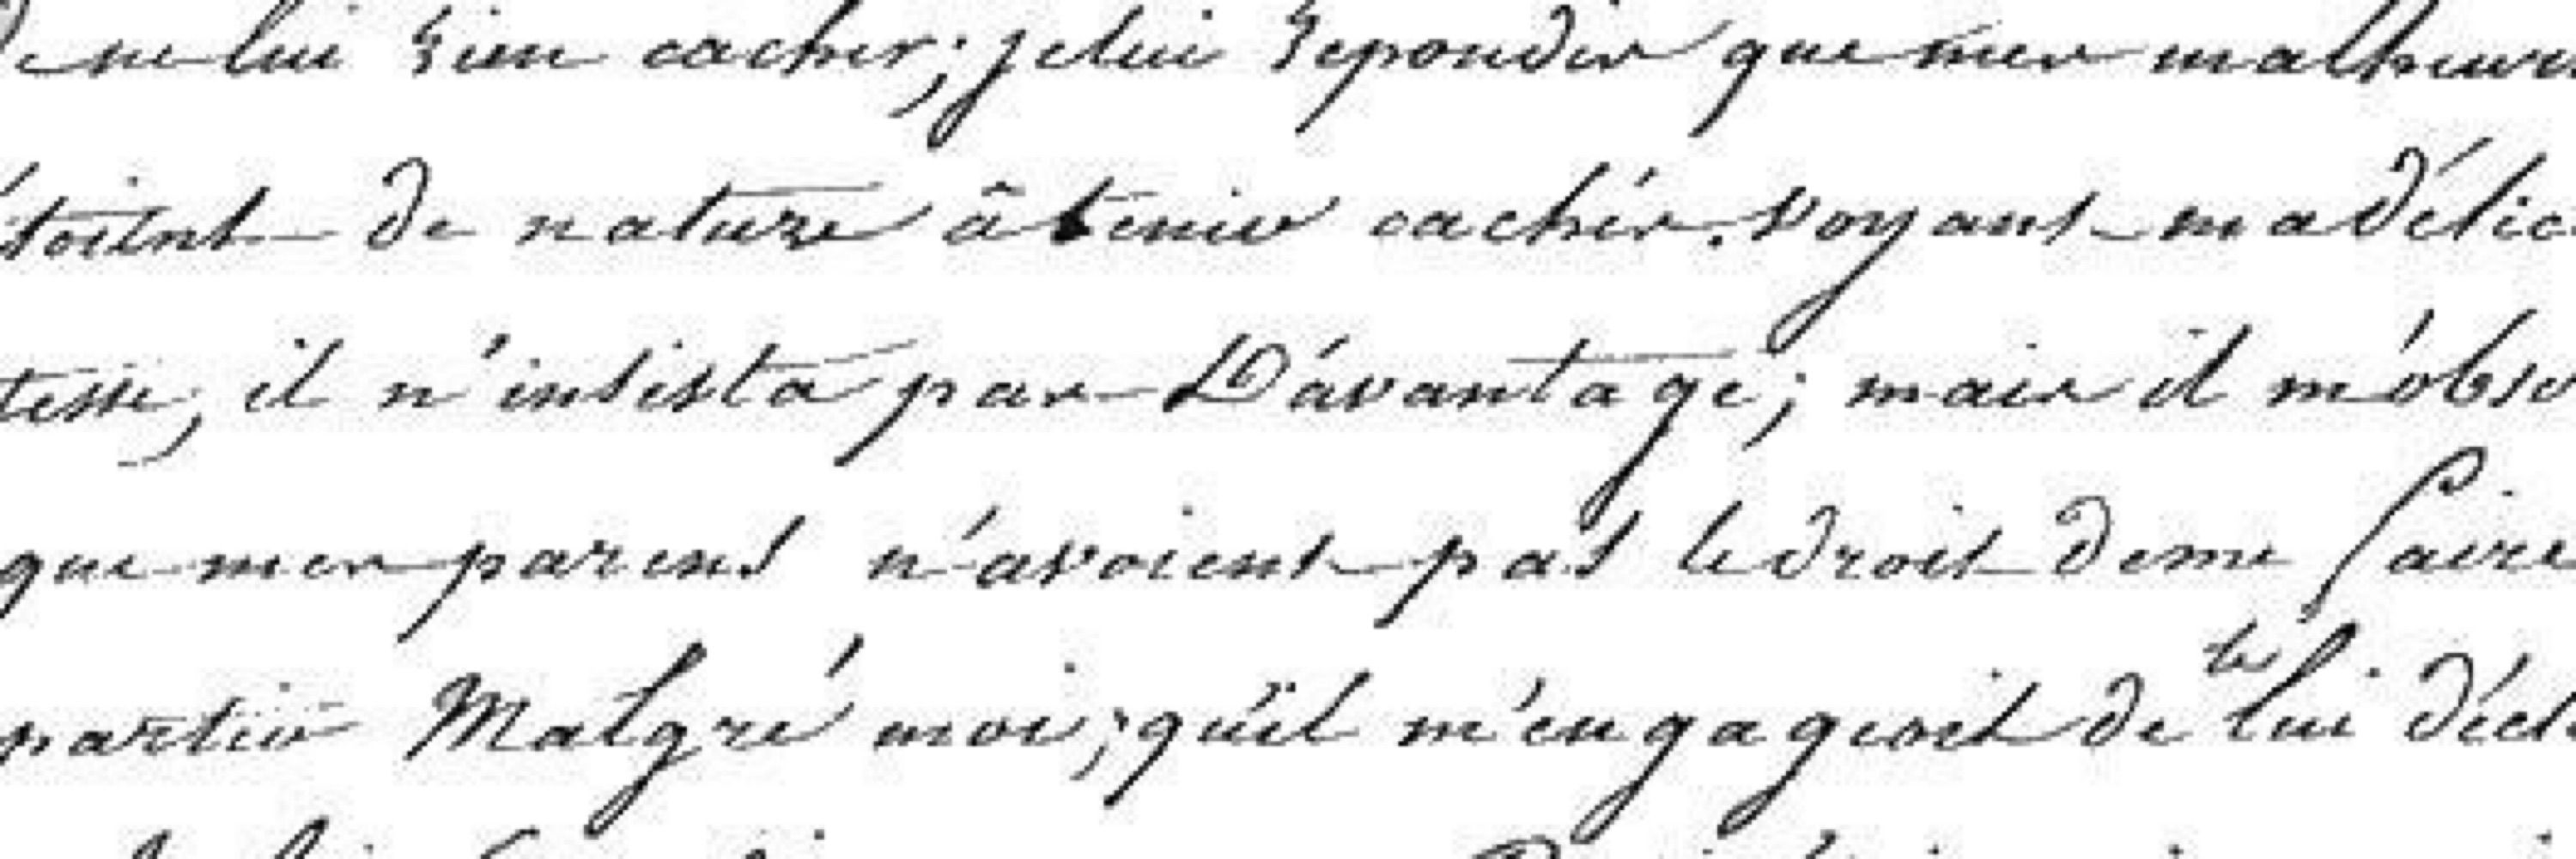 de ne lui rien cacher; je lui repondis que mes malheurs
étoint de nature â tenir cachés. voyant ma délica
tesse, il n'insista pas Dávantage; mais il m'obser
que mes parens n'avoient pas le droit de me faire
partir Malgré moi; qu'il m'engageoit de le lui décl